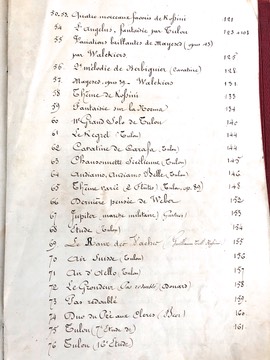 52, 53. Quatre morceaux favoris de Rossini 121
54 L'Angelus, fantaisie par Tulou 123 à 128
55 Variations brillantes de Mayseder (opus 45)
par Walckiers 127
56 2e mélodie de Berbiguier (Cavatine) 128
57. Mayseder, opus 39 - Walckiers 131
58 Thème de Rossini 133
59 Fantaisie sur la Norma 134
60 Grand Solo de Tulou 142
61 Le Regret (Tulou) 144
62 Cavatine de Carafa (Tulou) 144
63 Chansonnette Sicilienne (Tulou) 145
64 Andiam, Andiam, Belle (Tulou) 146
65 Thème varié (2 flûtes) (Tulou, op. 89) 148
66 Dernière pensée de Weber 152
67 Jupiter (marche militaire) 153
68 Etude (Tulou) 154
69 Le Ranz des Vaches (Guillaume Tell, Rossini) 155
70 Air Suisse (Tulou) 156
71 Air d'Aello (Tulou) 157
72 Le Grondeur (Pas redoublé) 158
73 Pas redoublé 159
74 Duo du Pré aux Clercs 160
75 Tulou (7e Etude de) 161
76 Tulou (16e Etude)